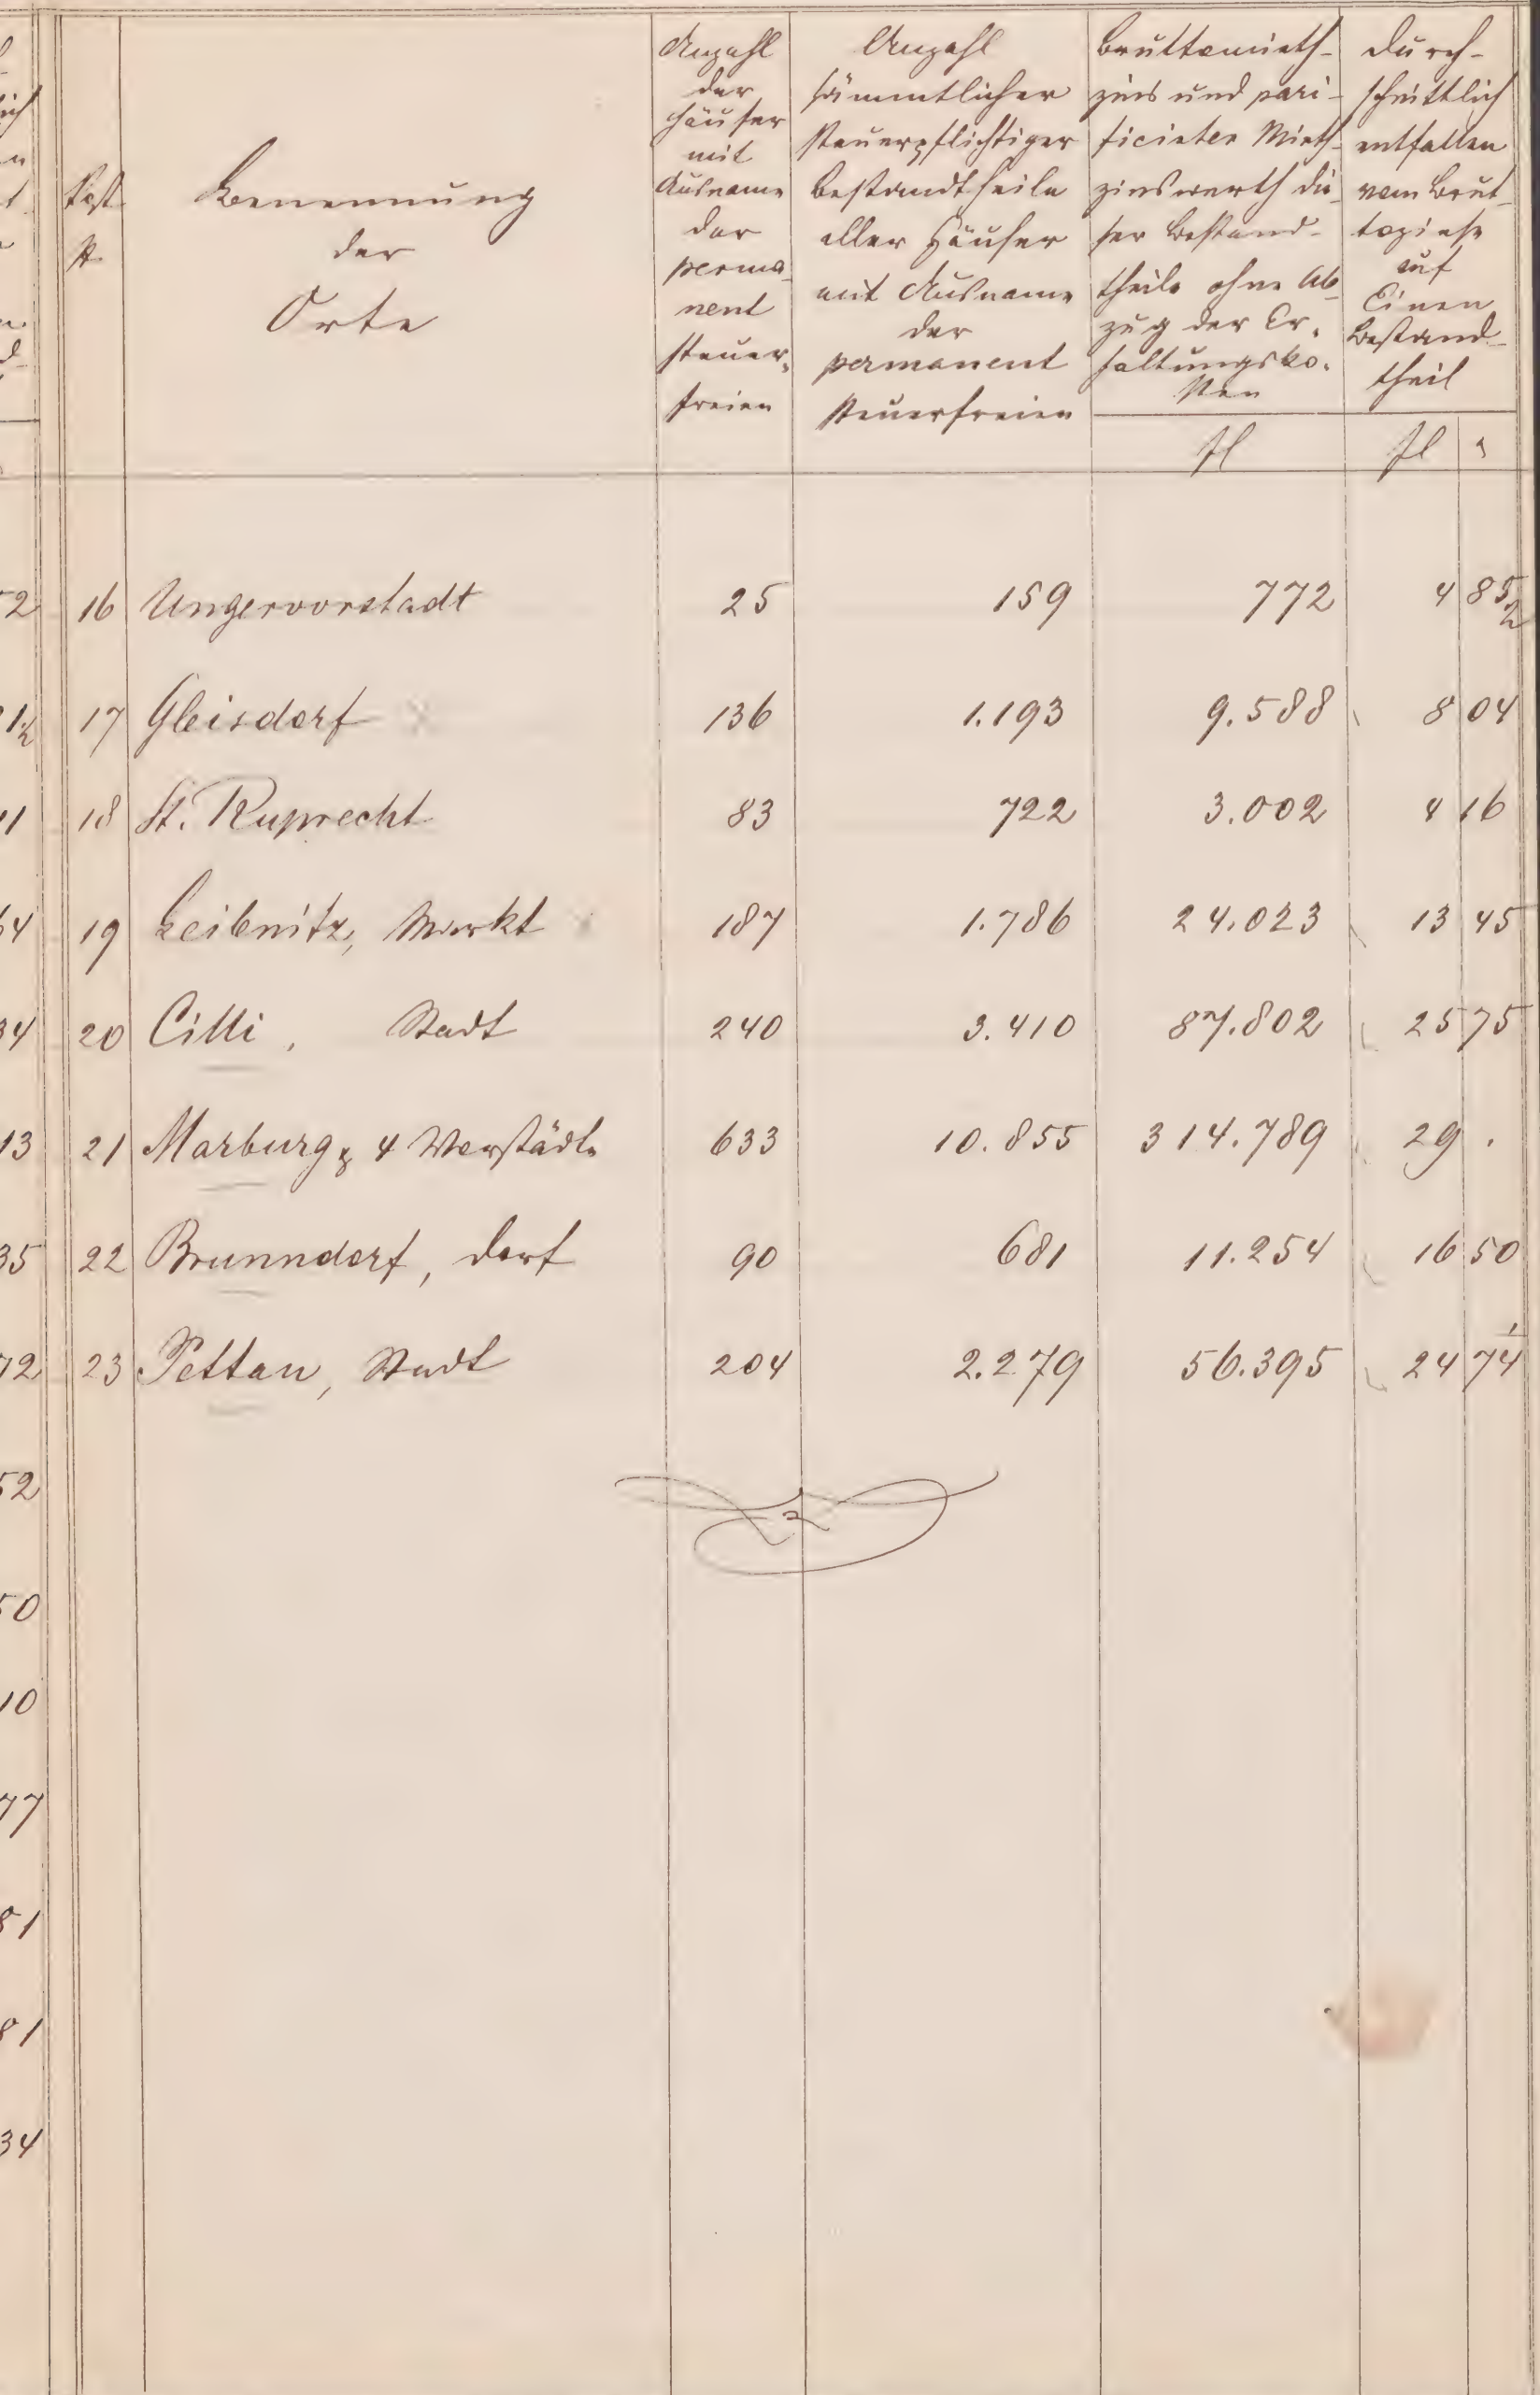 Post
№
Benennung
der
Orte
Anzahl
der
Häuser
mit
Ausname
der
perma-
nent
steuer-
freien
Anzahl
sämmtlicher
steuerpflichtiger
Bestandtheile
aller Häuser
mit Ausname
der
permanent
steuerfreien
Bruttomieth-
zins und pari-
ficirter Mieth-
zinswerth die-
ser Bestand-
theile ohne Ab-
zug der Er-
haltungsko-
sten
fl
Durch-
schnittlich
entfallen
vom Brut-
tozinse
auf
Einen
Bestand-
theil
fl
16 Ungervorstadt 25 159 772 4 85½
17 Gleisdorf 136 1.193 9.588 8 04
18 St. Ruprecht 83 722 3.002 4 16
19 Leibnitz, Markt 187 1.786 24.023 13 45
20 Cilli, Stadt 240 3.410 87.802 25 75
21 Marburg & 4 Vorstädte 633 10.855 314.789 29 .
22 Brunndorf, Dorf 90 681 11.254 16 50
23 Pettau, Stadt 204 2.279 56.395 24 74